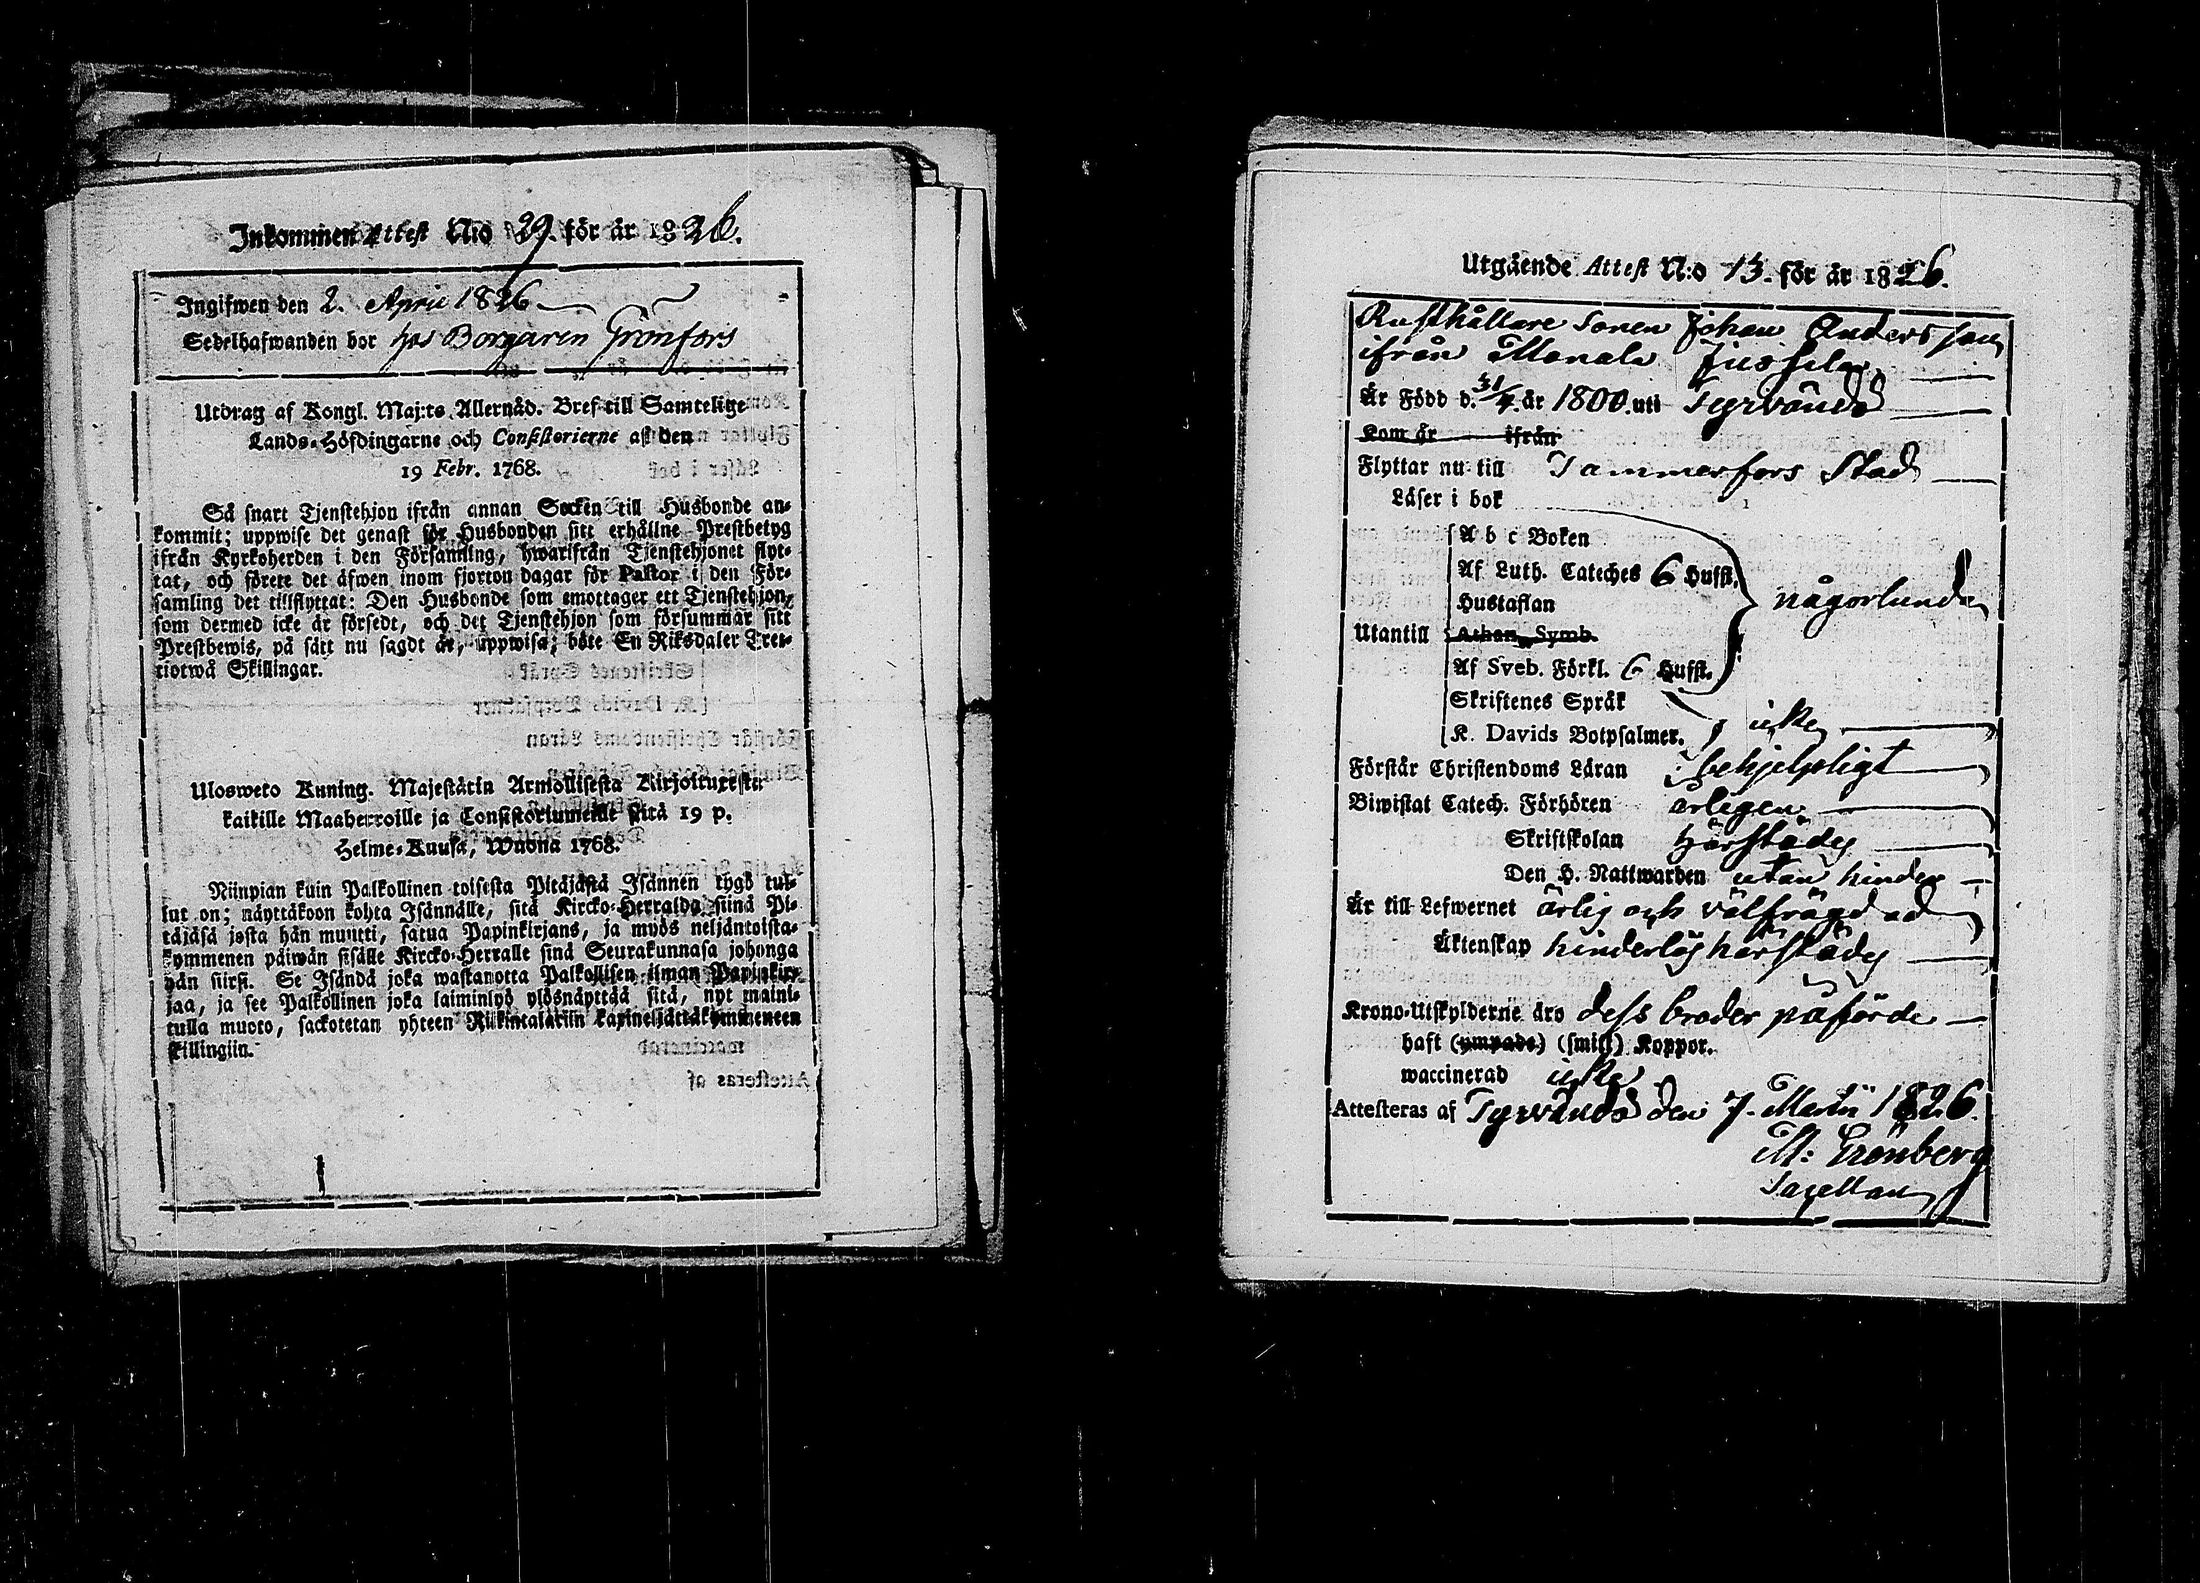 Inkommen Attest N:o 29. för år 1826.
Ingifwen den 2. April 1826
Sedelhafwanden bor hos Borgaren Grönfors
Utdrag af Kongl. Maj:ts Allernåd. Bref till Samtelige
Lands-Höfdingarne och Consistorierne af den
19 Febr. 1768.
Så snart Tjenstehjon ifrån annan Socken till Husbonde an-
kommit; uppwise det genast för Husbonden sitt erhållne Prestbetyg
ifrån Kyrkoherden i den Församling, hwarifrån Tjenstehjonet flyt-
tat, och förete det äfwen inom fjorton dagar för Pastor i den För-
samling det tillflyttat: Den Husbonde som emottager ett Tjenstehjon,
som dermed icke är försedt, och det Tjenstehjon som försummar sitt
Prestbewis, på sätt nu sagdt är, uppwisa; böte En Riksdaler Tret-
tiotwå Skillingar.
Ulosweto Kuning. Majestätin Armollisesta Kirjoituxesta
kaikille Maaherroille ja Consistoriumeille siitä 19 p.
Helme-Kuusa, Wuonna 1768.
Niinpian kuin Palkollinen toisesta Pitäjästä Isännen tygö tul-
lut on; näyttäköön kohta Isännälle, sitä Kircko-Herralda siinä Pi-
täjäsä josta hän muutti, saatua Papinkirjans, ja myös neljäntoista-
kymmenen päiwän sisälle Kircko-Herralle siinä Seurakunnasa johonga
hän siirsi. Se Isändä joka wastanotta Palkollisen ilman Papinkir-
jaa, ja see Palkollinen joka laiminlyö ylösnäyttää sitä, nyt maini-
tulla muoto, sackotetan yhteen Riikintalariin kaxineljättäkymmeneen
skillingiin.
Utgående Attest N:o 13. för år 1826.
Rusthållare Sonen Johan Andersson
ifrån Junsila
Är Född d. 31/4. år 1800. uti Tyrvändö
Kom år ifrån
Flyttar nu till Tammerfors Stad
Läser i bok
A b c Boken
Af Luth. Cateches 6 Hufst.
Hustaflan någorlunda
Utantill Athan. Symb.
Af Sveb. Förkl. 6 Hufst.
Skriftenes Språk
K. Davids Botpsalmer. icke
Förstår Christendoms Läran behjelpligt
Biwistat Catech. Förhören årligen
Skriftskolan härstädes
Den H. Nattwarden utan hinder
Är till Lefwernet ärlig och välfrägdad
Äktenskap hinderlös härstädes
Krono-Utskylderne äro dess broder påförde
haft (ympade) (smitt) Koppor.
waccinerad icke
Attesteras af Tyrvändö den 7. Martii 1826.
M: Grönberg
Sacellan